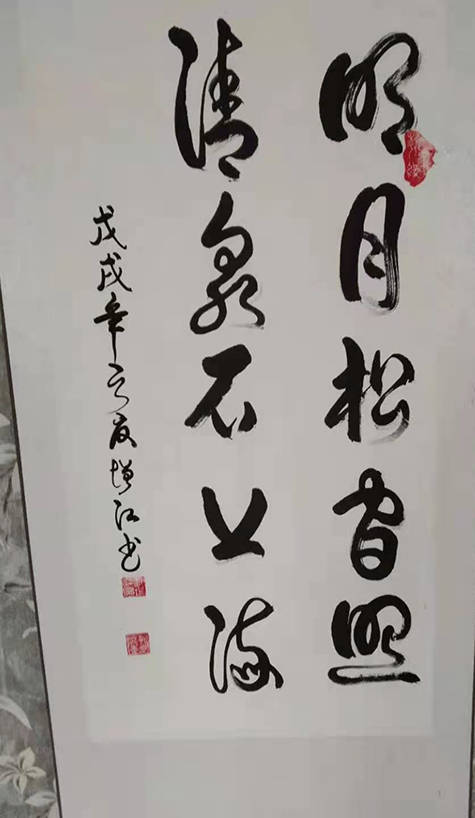 明月松间照
清泉石上流
戊戌年之夏增江书